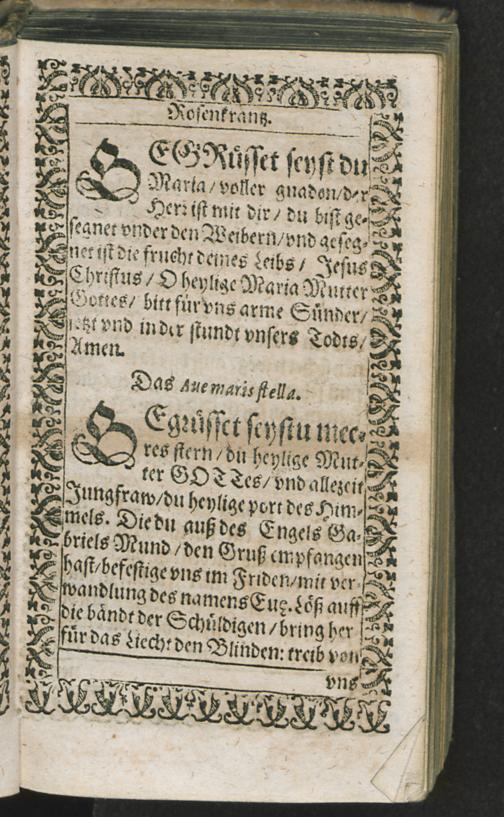 Rosenkrantz.
BEGRüsset seyst du
Maria / voller gnaden / der
Herr ist mit dir / du bist ge-
segnet vnder den Weibern / vnd geseg-
net ist die frucht deines Leibs / Jesus
Christus / O heylige Maria Mutter
Gottes / bitt für vns arme Sünder /
jetzt vnd in der stundt vnsers Todts /
Amen.
Das Aue maris stella.
BEgrüsset seystu mee-
res stern / du heylige Mut-
ter GOTTes / vnd allezeit
Jungfraw / du heylige port des Him-
mels. Die du auß des Engels Ga-
briels Mund / den Gruß empfangen
hast / befestige vns im Friden / mit ver-
wandlung des namens Euę. Löß auff
die bändt der Schüldigen / bring her
für das Liecht den Blinden: treib von
vns